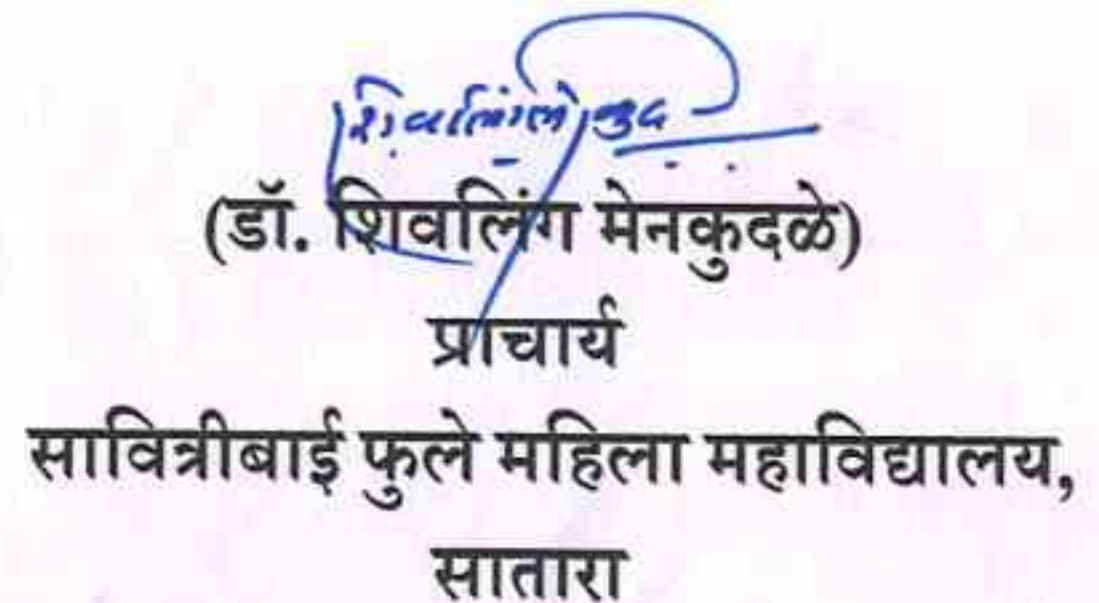 (डॉ. शिवलिंग मेनकुदळे)
प्राचार्य
सावित्रीबाई फुले महिला महाविद्यालय,
सातारा